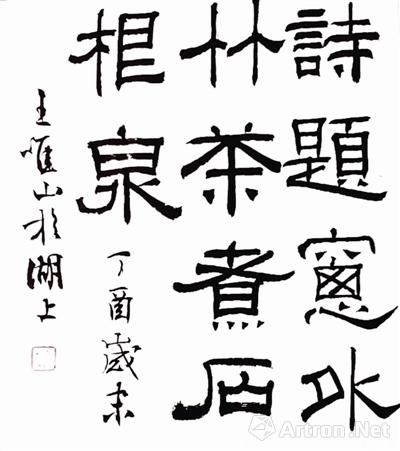 詩題窻外
竹茶煮石
根泉
丁酉歲末
王惟山於湖上
Artron.Net